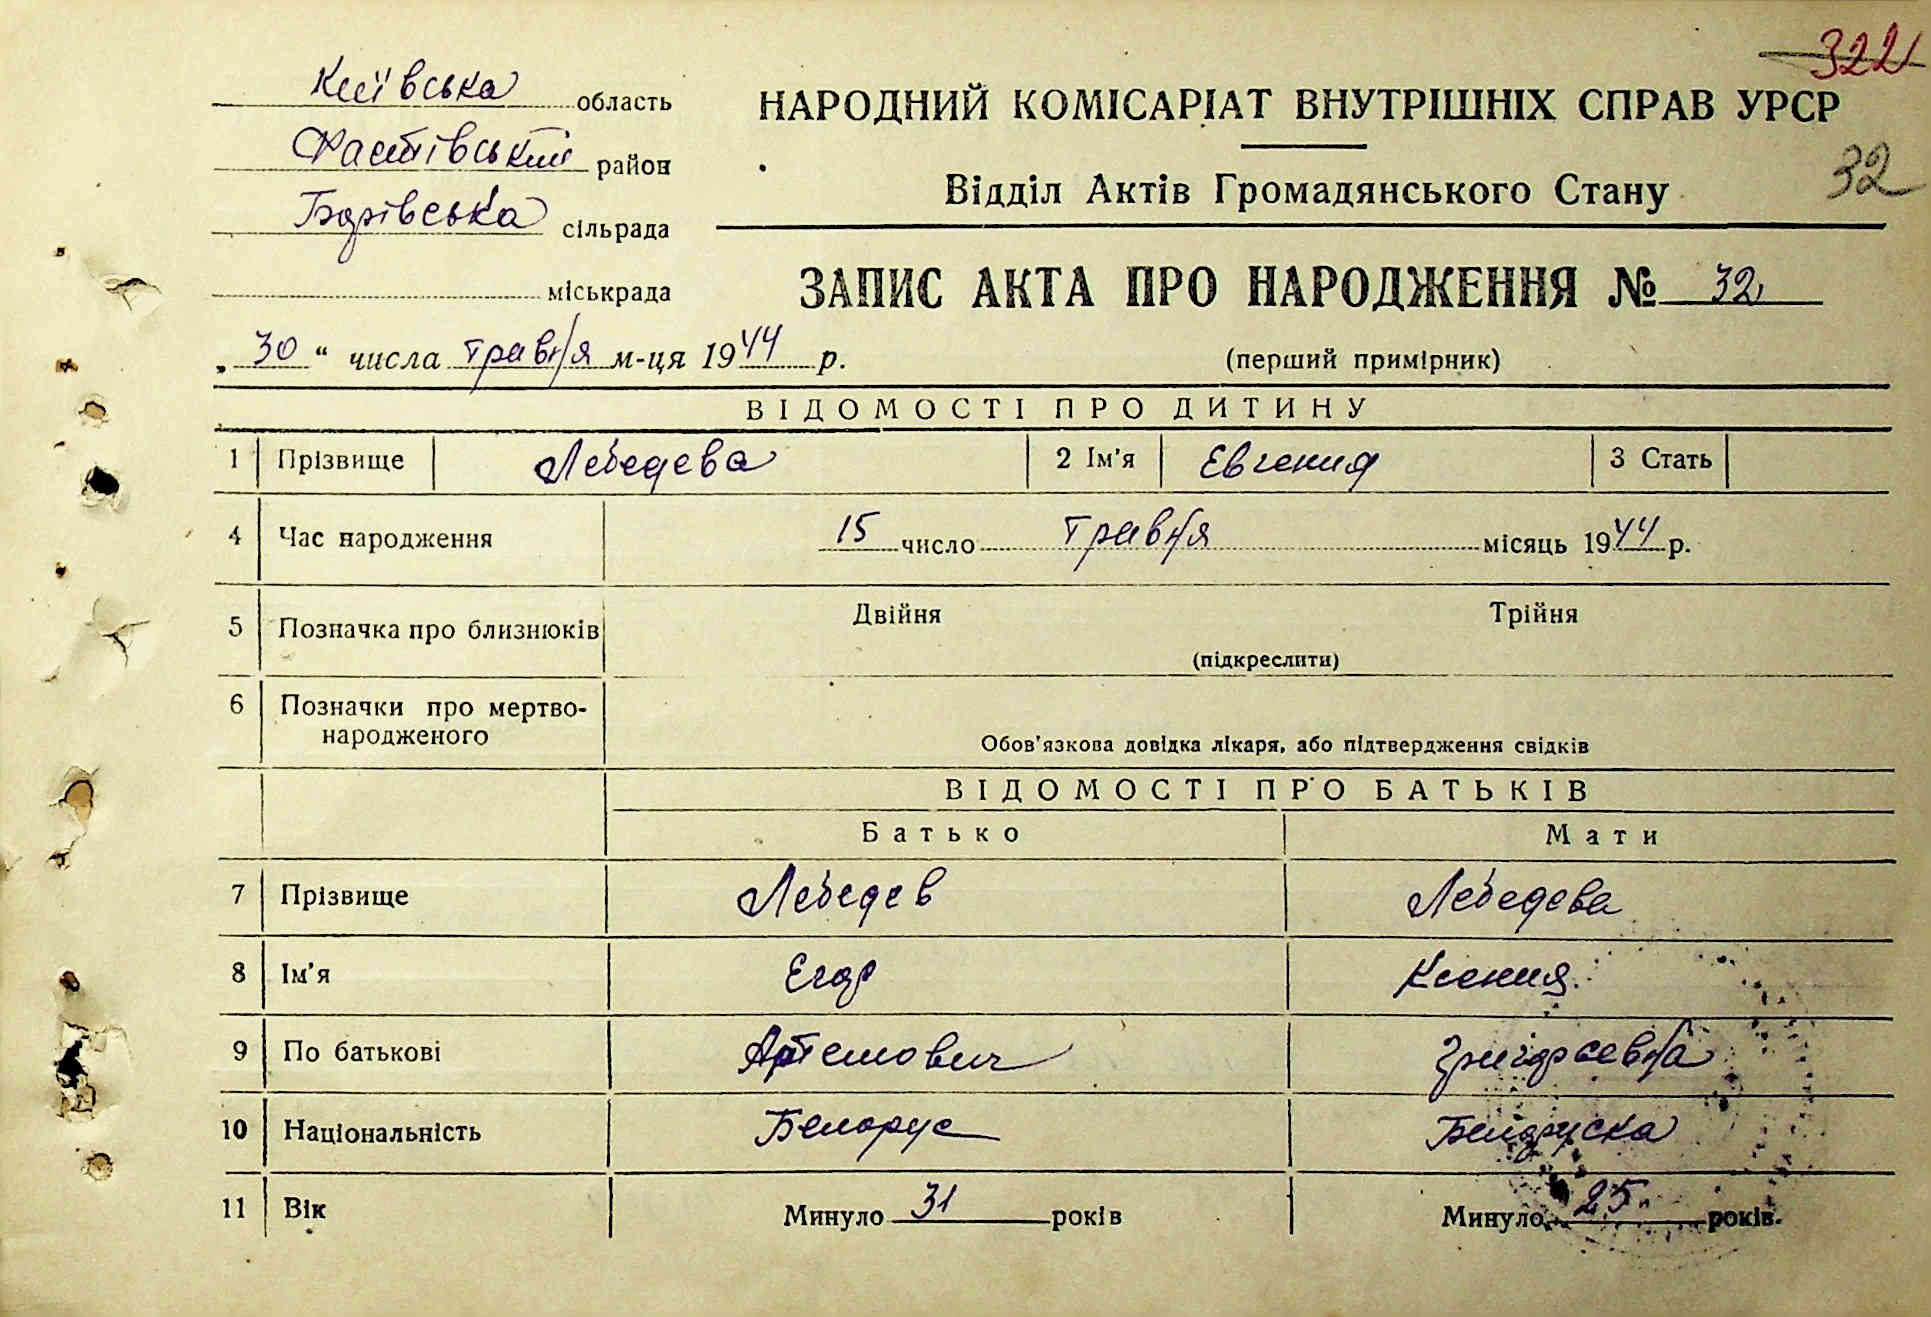 322
Київська область
Фастівський район
Борівська сільрада
міськрада
„30“ числа травня м-ця 1944 р.
НАРОДНИЙ КОМІСАРІАТ ВНУТРІШНІХ СПРАВ УРСР
32
Відділ Актів Громадянського Стану
ЗАПИС АКТА ПРО НАРОДЖЕННЯ № 32
(перший примірник)
ВІДОМОСТІ ПРО ДИТИНУ
1 Прізвище Лебедева 2 Ім'я Евгения 3 Стать
4 Час народження 15 число травня місяць 1944 р.
5 Позначка про близнюків Двійня Трійня
(підкреслити)
6 Позначки про мертво-
народженого
Обов'язкова довідка лікаря, або підтвердження свідків
ВІДОМОСТІ ПРО БАТЬКІВ
Батько Мати
7 Прізвище Лебедев Лебедева
8 Ім'я Егор Ксения
9 По батькові Артемович Григорьевна
10 Національність Белорус Белоруска
11 Вік Минуло 31 років Минуло 25 років